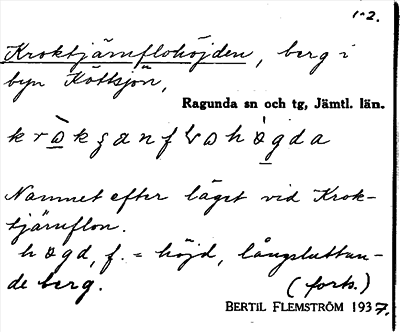 1-2.
Kroktjärnflohöjden, berg i
byn Köttsjön,
Ragunda sn och tg, Jämtl. län.
Namnet efter läget vid Krok-
tjärnflon.
högd, f. = höjd, långsluttan-
de berg. (forts.)
BERTIL FLEMSTRÖM 1937.